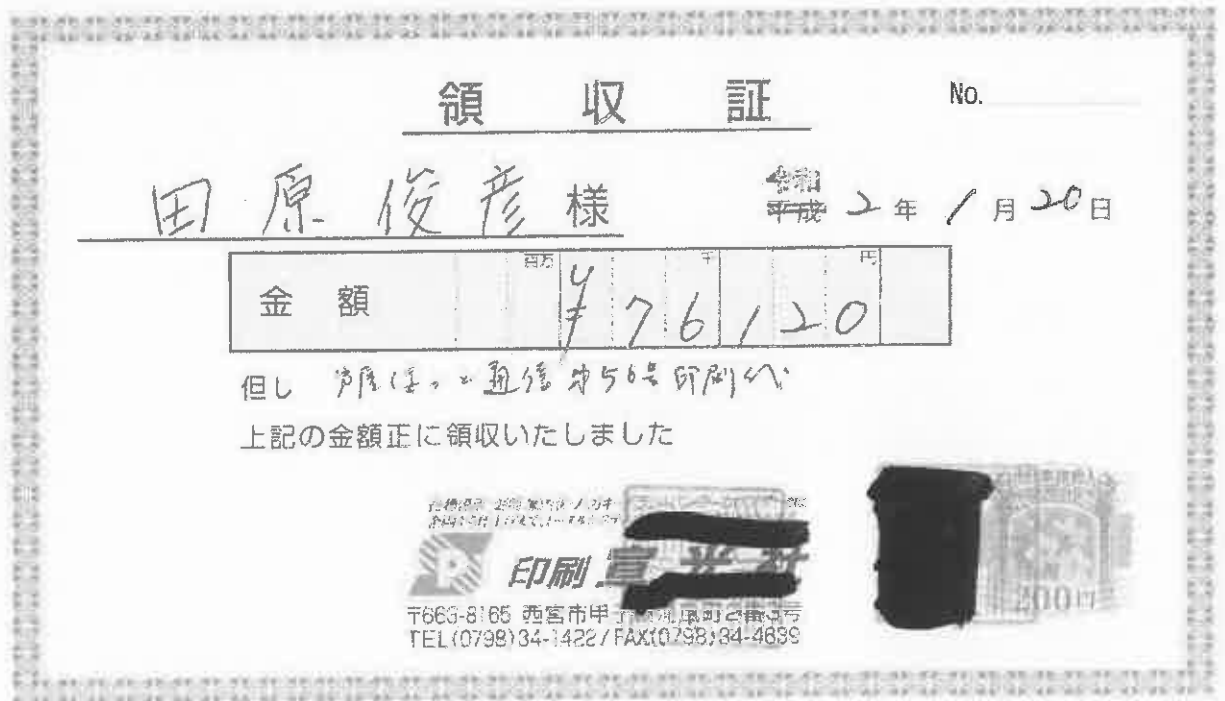 領収証
No.
田原俊彦様
令和
平成 2年 1月20日
金額 百万 千 円
¥76120
但し 芦屋ほっと通信第56号印刷代
上記の金額正に領収いたしました
印刷
〒663-8165 西宮市甲
TEL(0798)34-1422/FAX(0798)34-4639
200円